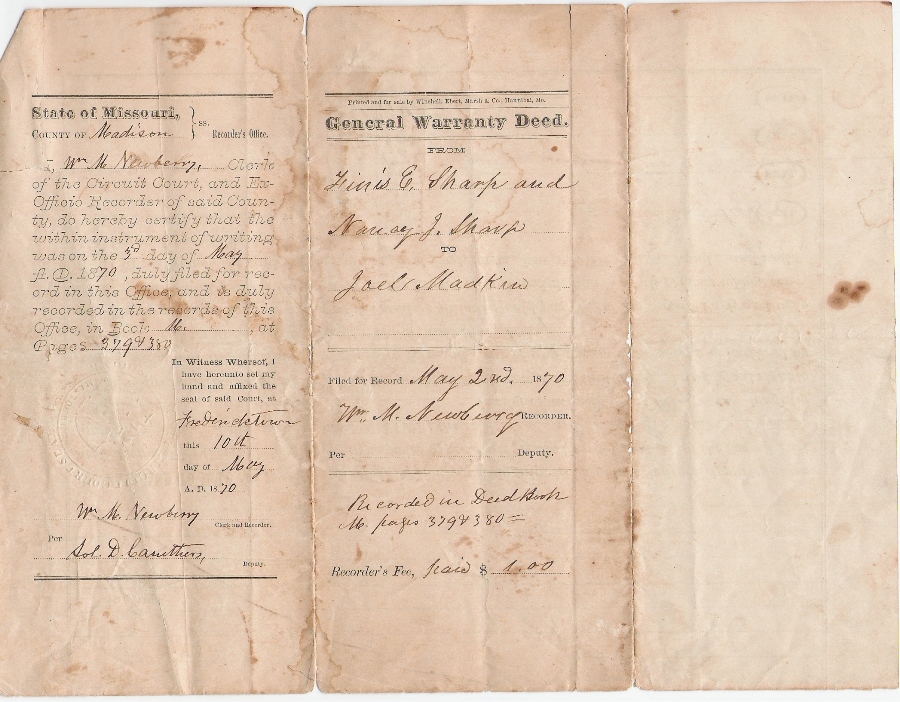 State of Missouri,
COUNTY OF Madison } ss. Recorder's Office.
I, Wm M Newberry, Clerk
of the Circuit Court, and Ex-
Officio Recorder of said Coun-
ty, do hereby certify that the
within instrument of writing
was on the day of May
A. D. 1870, duly filed for rec-
ord in this Office, and is duly
recorded in the records of this
Office, in Book M. , at
Pages 379 & 380
In Witness Whereof, I
have hereunto set my
hand and affixed the
seal of said Court, at
Fredericktown
this 10th
day of May
A. D. 1870
Wm M. Newberry
Clerk and Recorder.
Per
Sol. D. Caruthers,
Deputy.
Printed and for sale by Winchell, Ebert, Marsh & Co., Hannibal, Mo.
General Warranty Deed.
FROM
Finis E. Sharp and
Nancy J. Sharp
TO
Joel Madkin
Filed for Record May 2nd. 1870
Wm. M. Newberry RECORDER.
Per Deputy.
Recorded in Deed Book
M. pages 379 & 380 =
Recorder's Fee, paid $ 1.00